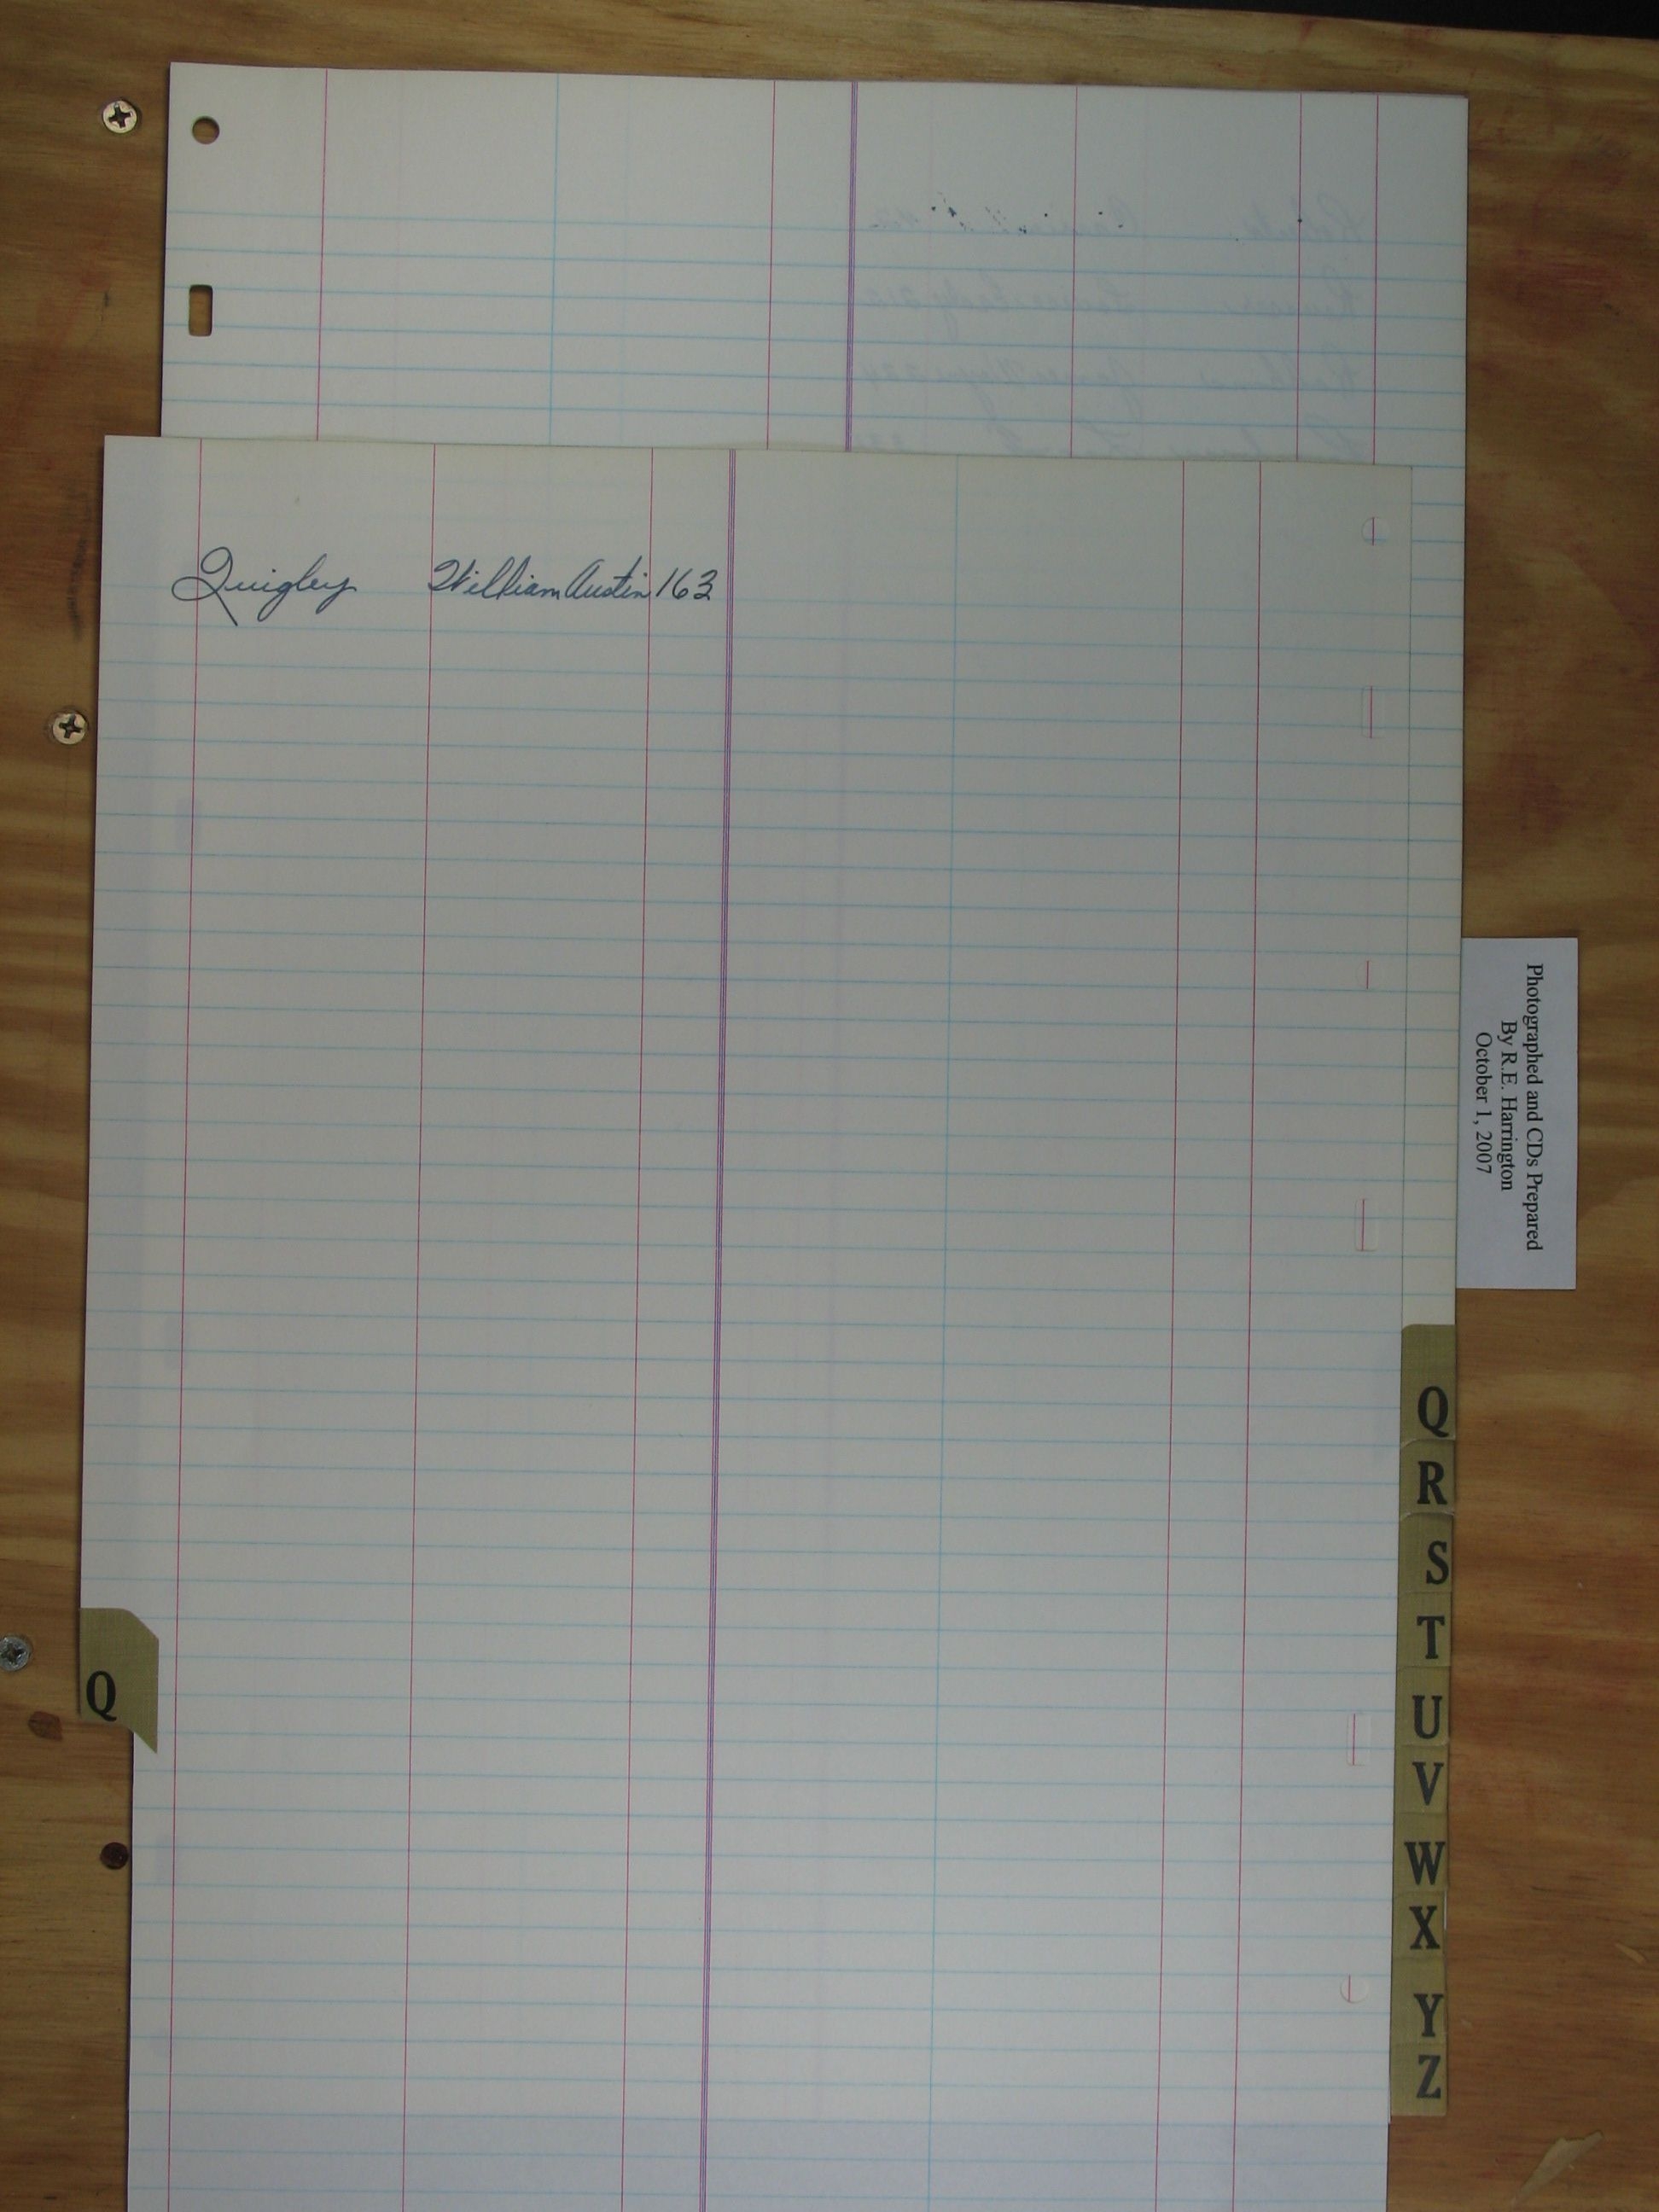 Quigley William Austin 163
Photographed and CDs Prepared
By R.E. Harrington
October 1, 2007
Q
R
S
T
U
V
W
X
Y
Z
Q